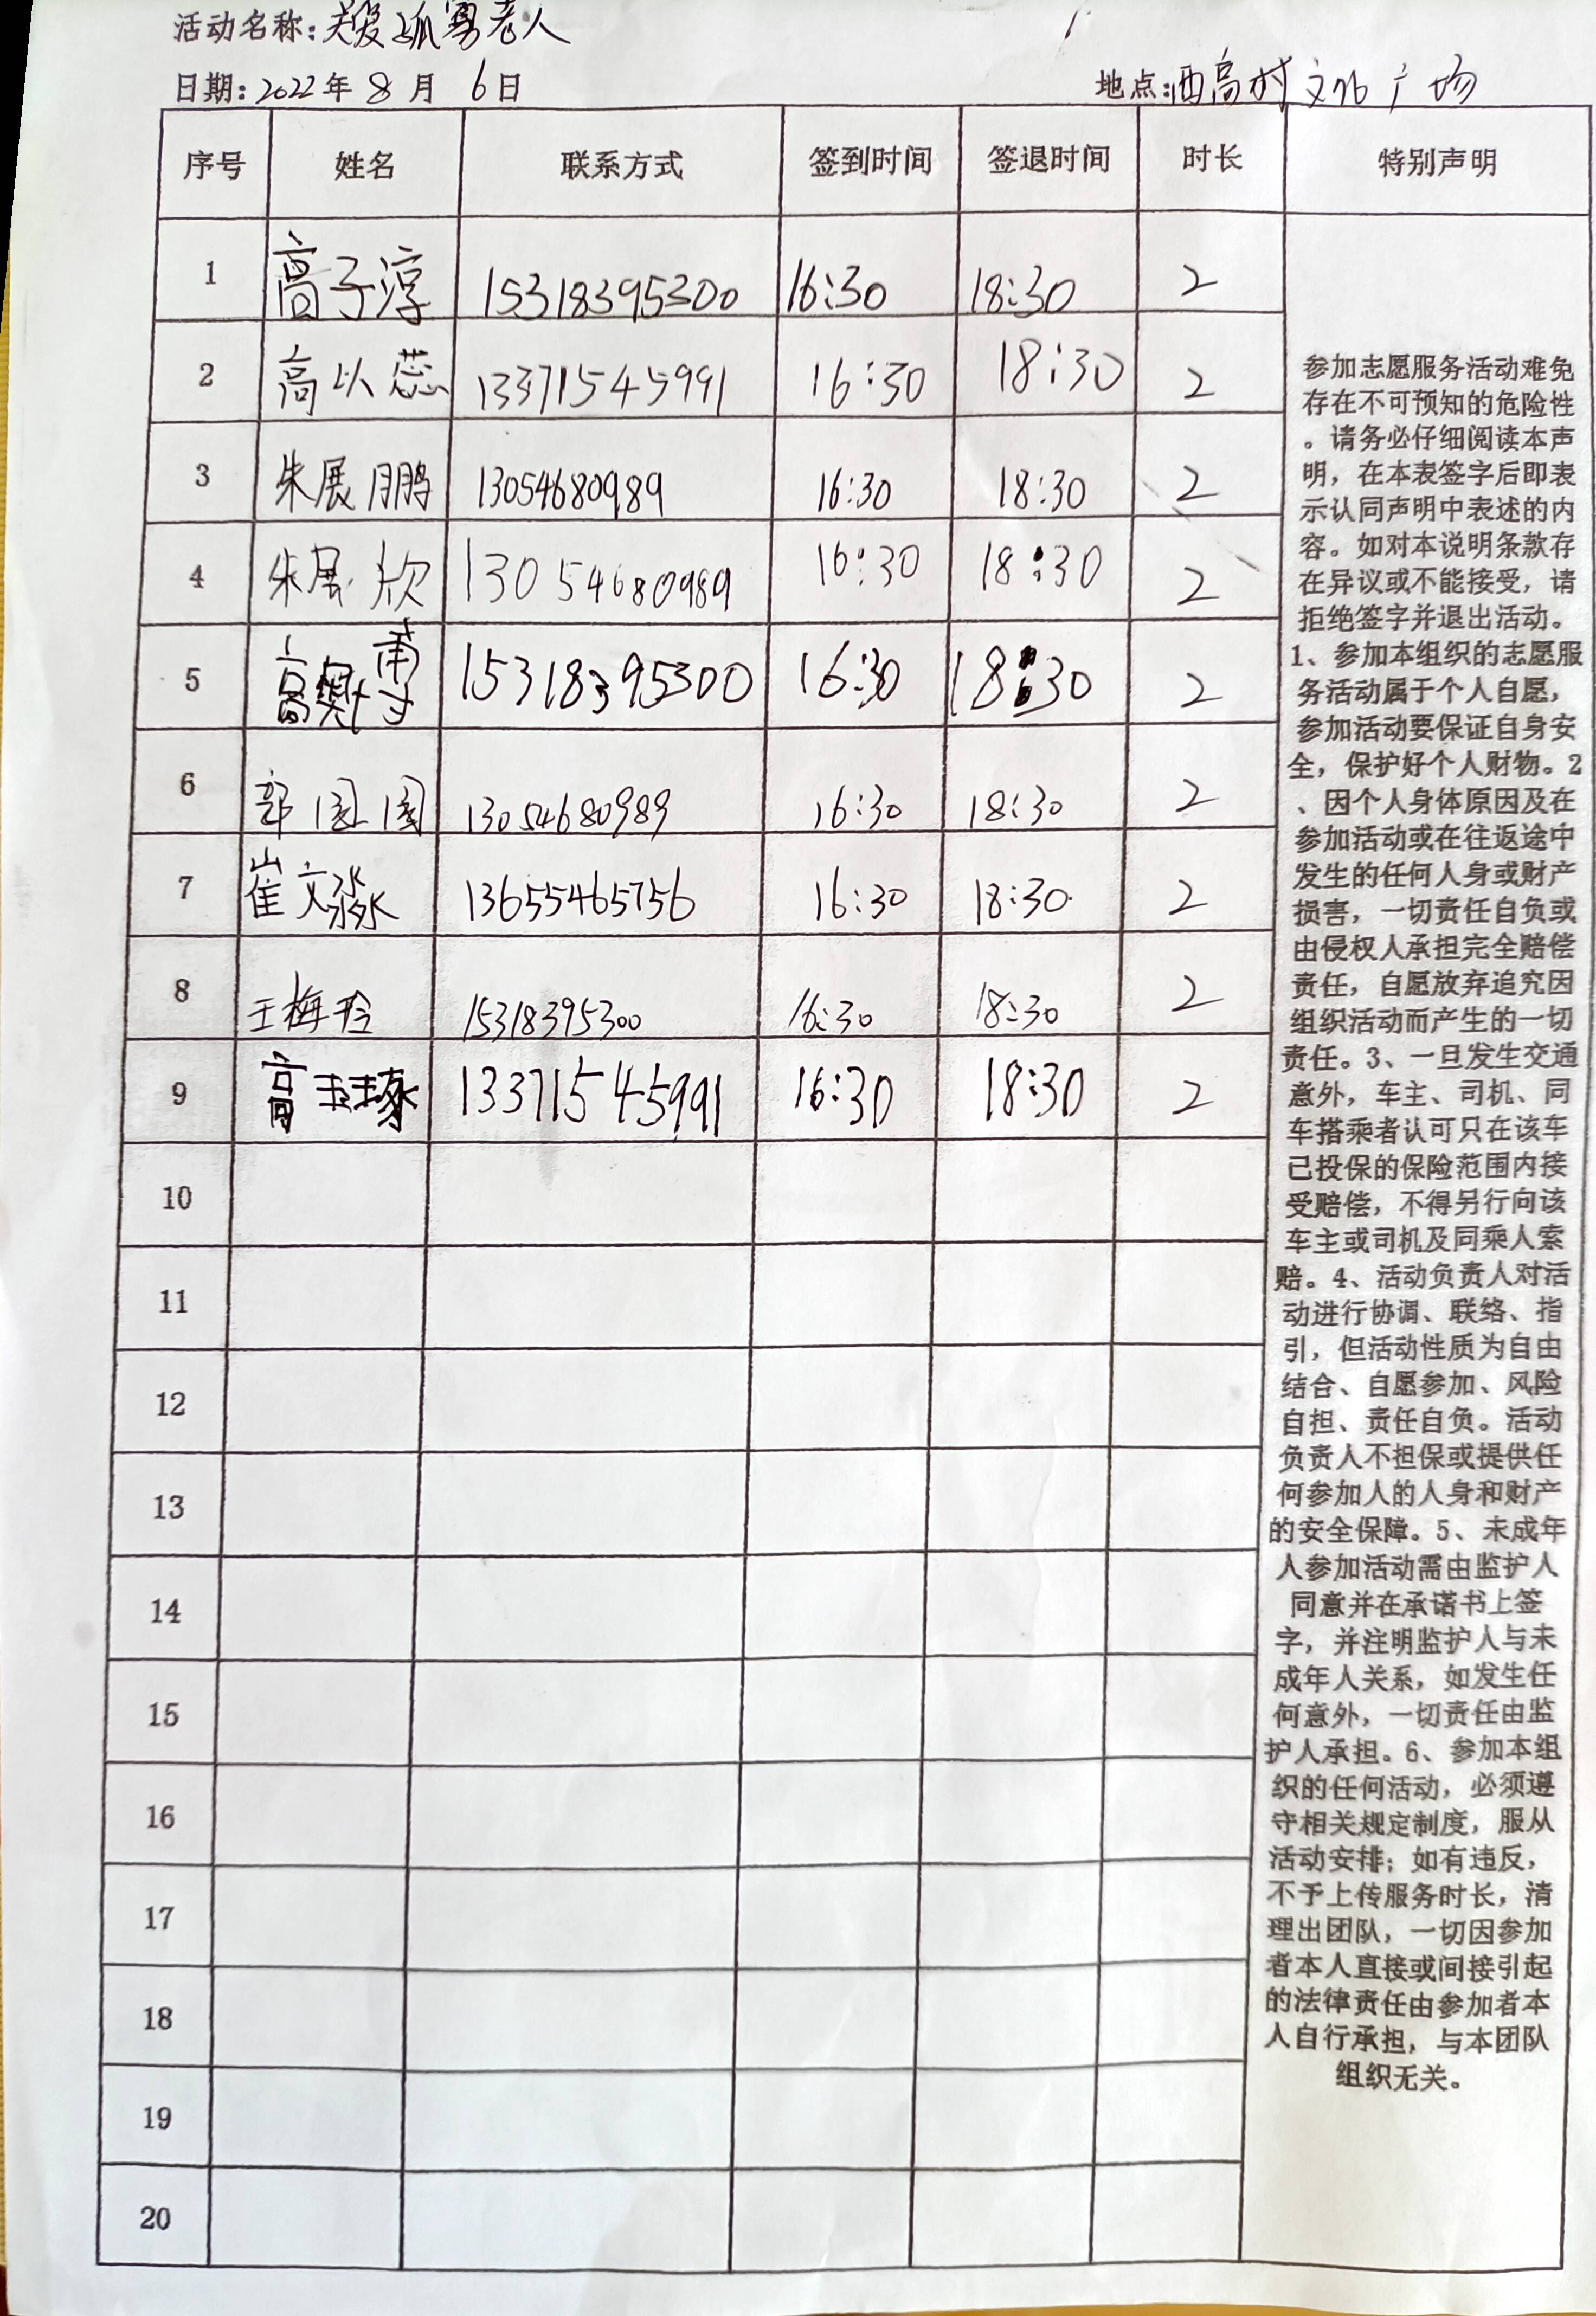 活动名称:关爱孤寡老人
日期:2022年8月 6日 地点:西高村文化广场
序号 姓名 联系方式 签到时间 签退时间 时长 特别声明
1 高子淳 15318395300 16:30 18:30 2
2 高以蕊 13371545991 16:30 18:30 2
3 朱展鹏 13054680989 16:30 18:30 2
4 朱展欣 13054680989 16:30 18:30 2
5 高奥博 15318395300 16:30 18:30 2
6 郭园园 13054680989 16:30 18:30 2
7 崔文淼 13655465756 16:30 18:30 2
8 王梅玲 15318395300 16:30 18:30 2
9 高玉琢 13371545991 16:30 18:30 2
10
11
12
13
14
15
16
17
18
19
20
参加志愿服务活动难免
存在不可预知的危险性
。请务必仔细阅读本声
明，在本表签字后即表
示认同声明中表述的内
容。如对本说明条款存
在异议或不能接受，请
拒绝签字并退出活动。
1、参加本组织的志愿服
务活动属于个人自愿，
参加活动要保证自身安
全，保护好个人财物。2
、因个人身体原因及在
参加活动或在往返途中
发生的任何人身或财产
损害，一切责任自负或
由侵权人承担完全赔偿
责任，自愿放弃追究因
组织活动而产生的一切
责任。3、一旦发生交通
意外，车主、司机、同
车搭乘者认可只在该车
已投保的保险范围内接
受赔偿，不得另行向该
车主或司机及同乘人索
赔。4、活动负责人对活
动进行协调、联络、指
引，但活动性质为自由
结合、自愿参加、风险
自担、责任自负。活动
负责人不担保或提供任
何参加人的人身和财产
的安全保障。5、未成年
人参加活动需由监护人
同意并在承诺书上签
字，并注明监护人与未
成年人关系，如发生任
何意外，一切责任由监
护人承担。6、参加本组
织的任何活动，必须遵
守相关规定制度，服从
活动安排；如有违反，
不予上传服务时长，清
理出团队，一切因参加
者本人直接或间接引起
的法律责任由参加者本
人自行承担，与本团队
组织无关。